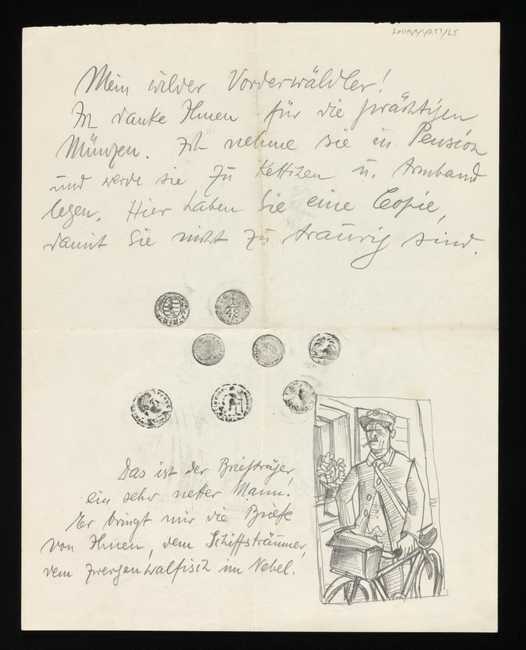 Mein wilder Vorderwäldler!
Ich danke Ihnen für die prächtigen
Münzen. Ich nehme sie in Pension
und werde sie zu Kettchen u. Armband
legen. Hier haben Sie eine Copie,
damit Sie nicht zu traurig sind.
Das ist der Briefträger,
ein sehr netter Mann.
Er bringt mir die Briefe
von Ihnen, dem Schiffsträumer,
dem Zwergenwalfisch im Nebel.